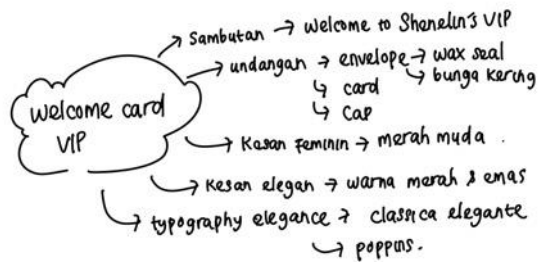 Sambutan → Welcome to Shenelin's VIP
undangan → envelope → wax seal
↳ bunga kering
↳ card
↳ Cap
Welcome card
VIP
Kesan Feminin → merah muda .
Kesan elegan → warna merah & emas
typography elegance → classica elegante
↳ poppins.